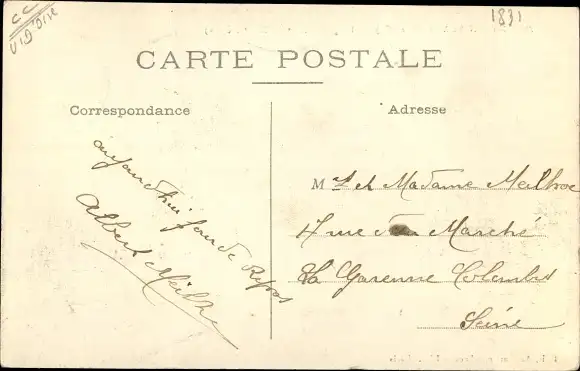 CC
VID'OISE
1831
CARTE POSTALE
Correspondance
Adresse
aujourd'hui jour de Repos
Albert Meilhoc
M r et Madame Meilhoc
17 rue du Marché
La Garenne Colombes
Seine